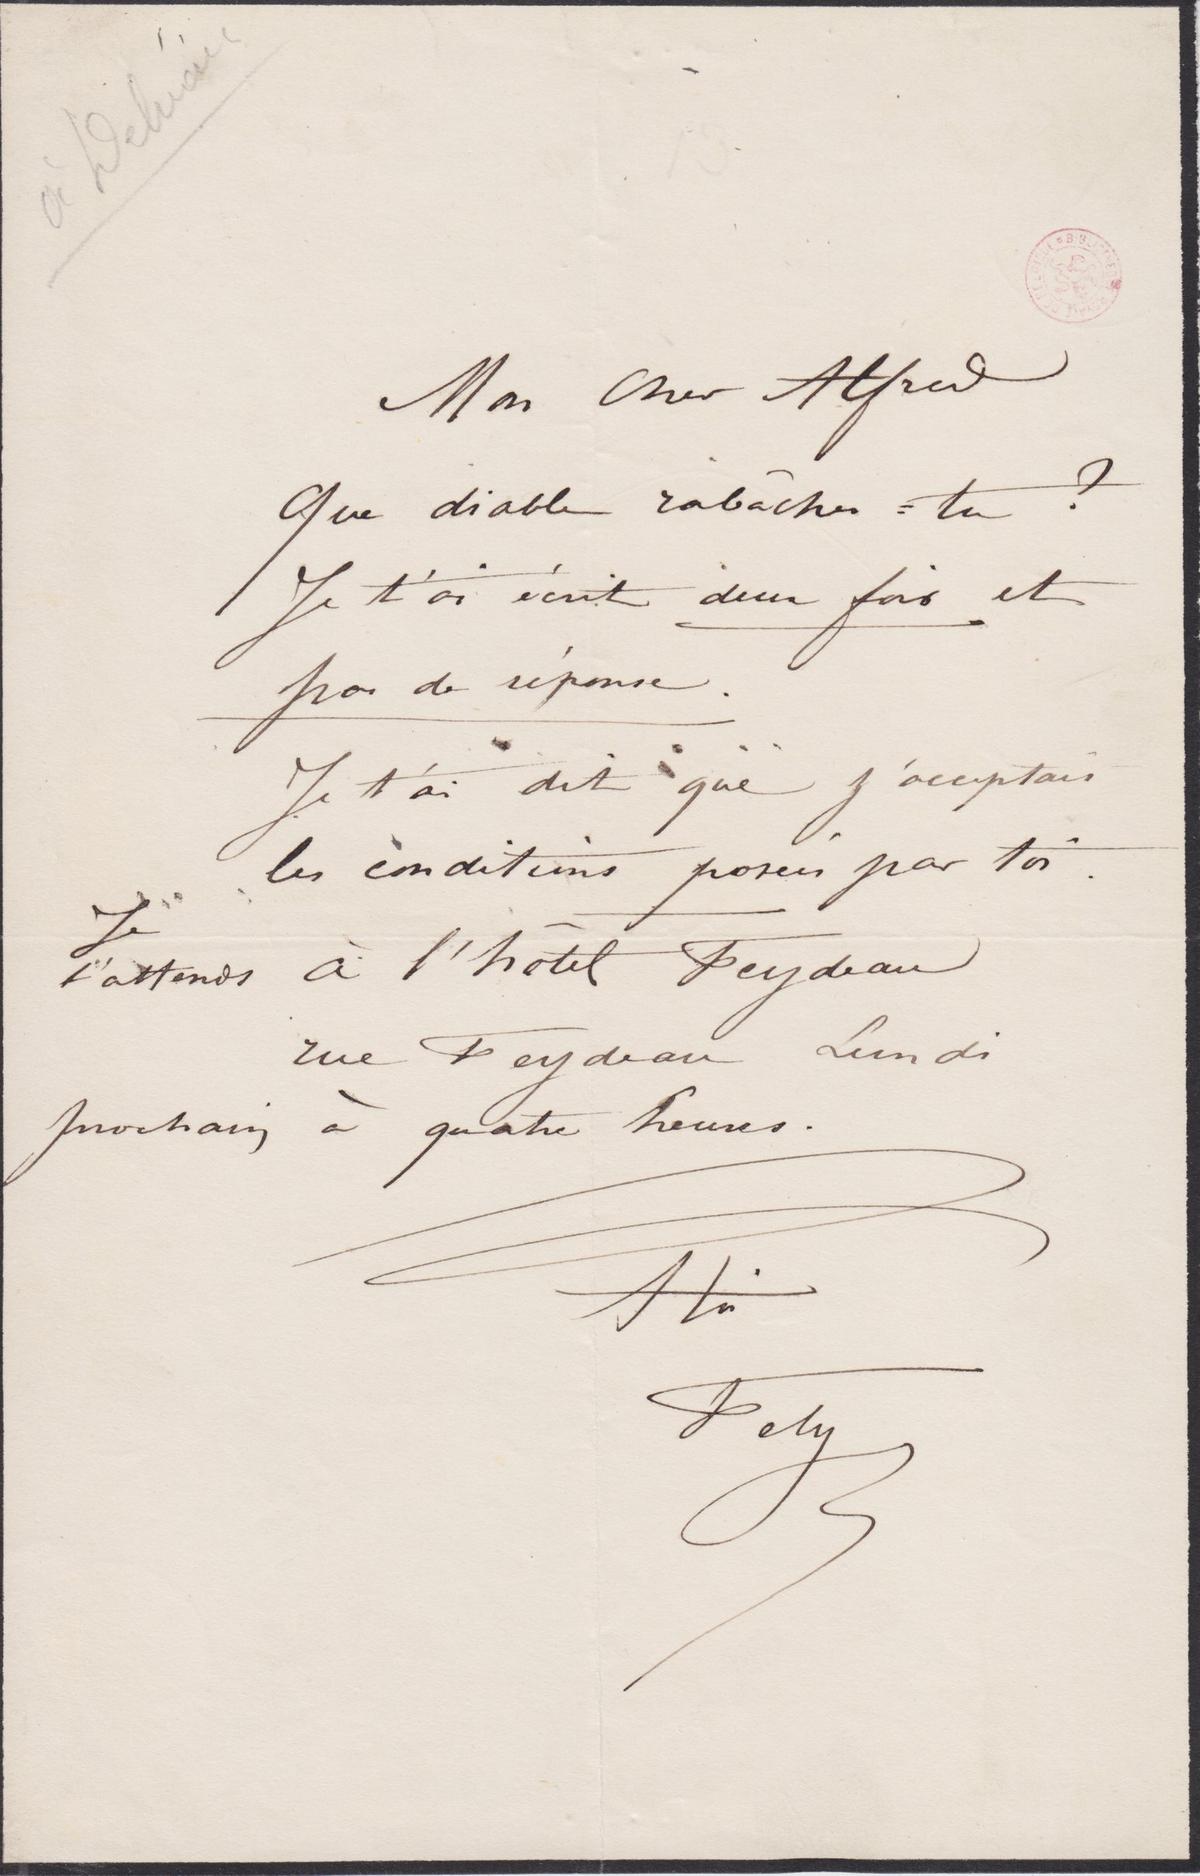 à Delvau
BIBLIOTHÈQUE ROYALE DE BELGIQUE
Mon Cher Alfred
Que diable rabâches=tu ?
Je t'ai écrit deux fois et
pas de réponse.
Je t'ai dit que j'acceptais
les conditions posées par toi.
Je
t'attends à l'hôtel Feydeau
rue Feydeau Lundi
prochain à quatre heures.
A toi
Fely